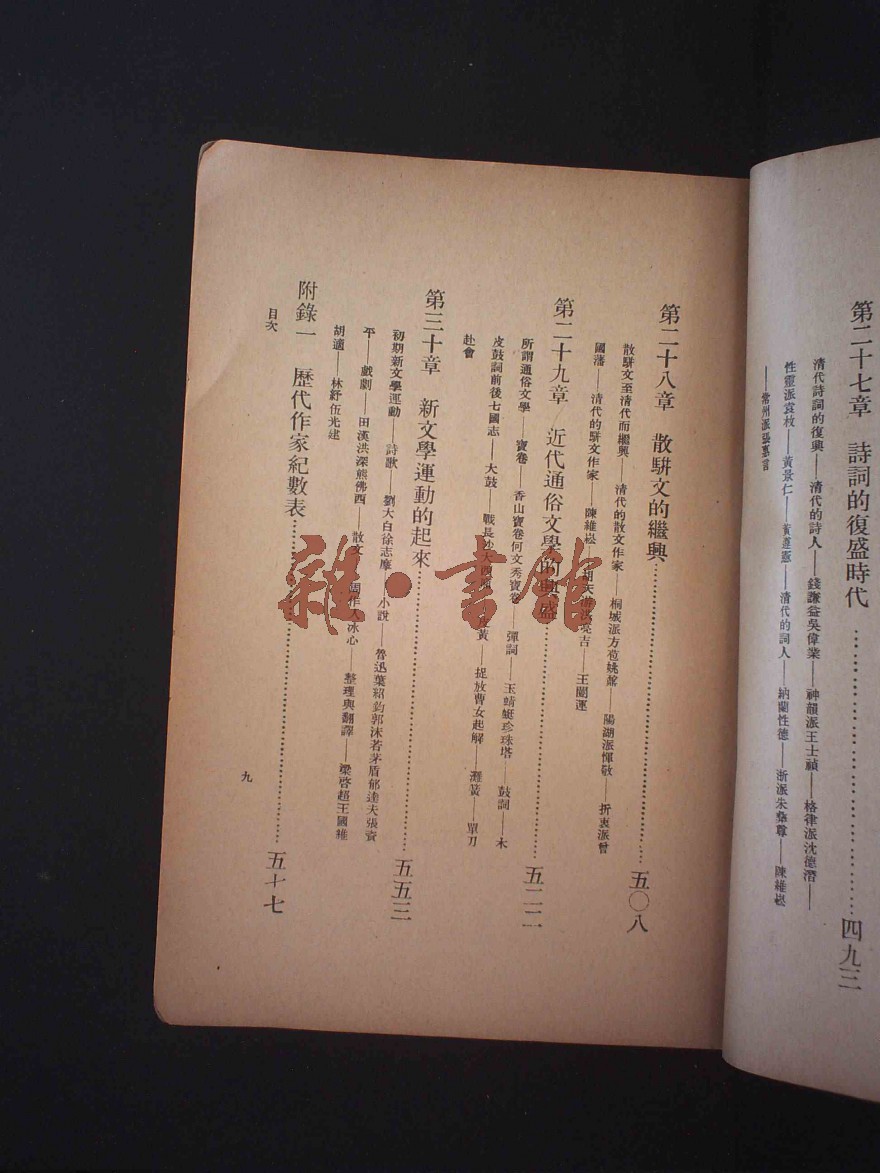 第二十七章　詩詞的復盛時代……四九三
清代詩詞的復興——清代的詩人——錢謙益吳偉業——神韻派王士禎——格律派沈德潛——
性靈派袁枚——黃景仁——黃遵憲——清代的詞人——納蘭性德——浙派朱彝尊——陳維崧
——常州派張惠言
第二十八章　散駢文的繼興……五〇八
散駢文至清代而繼興——清代的散文作家——桐城派方苞姚鼐——陽湖派惲敬——折衷派曾
國藩——清代的駢文作家——陳維崧——胡天游洪亮吉——王闓運
第二十九章　近代通俗文學的興盛……五二二
所謂通俗文學——寶卷——香山寶卷何文秀寶卷——彈詞——玉蜻蜓珍珠塔——鼓詞——木
皮鼓詞前後七國志——大鼓——戰長沙大西廂——皮黃——捉放曹女起解——灘簧——單刀
赴會
第三十章　新文學運動的起來……五五三
初期新文學運動——詩歌——劉大白徐志摩——小說——魯迅葉紹鈞郭沫若茅盾郁達夫張資
平——戲劇——田漢洪深熊佛西——散文——周作人冰心——整理與翻譯——梁啓超王國維
胡適——林紓伍光建
附錄一　歷代作家紀數表……五七七
目次
九
雜·書館